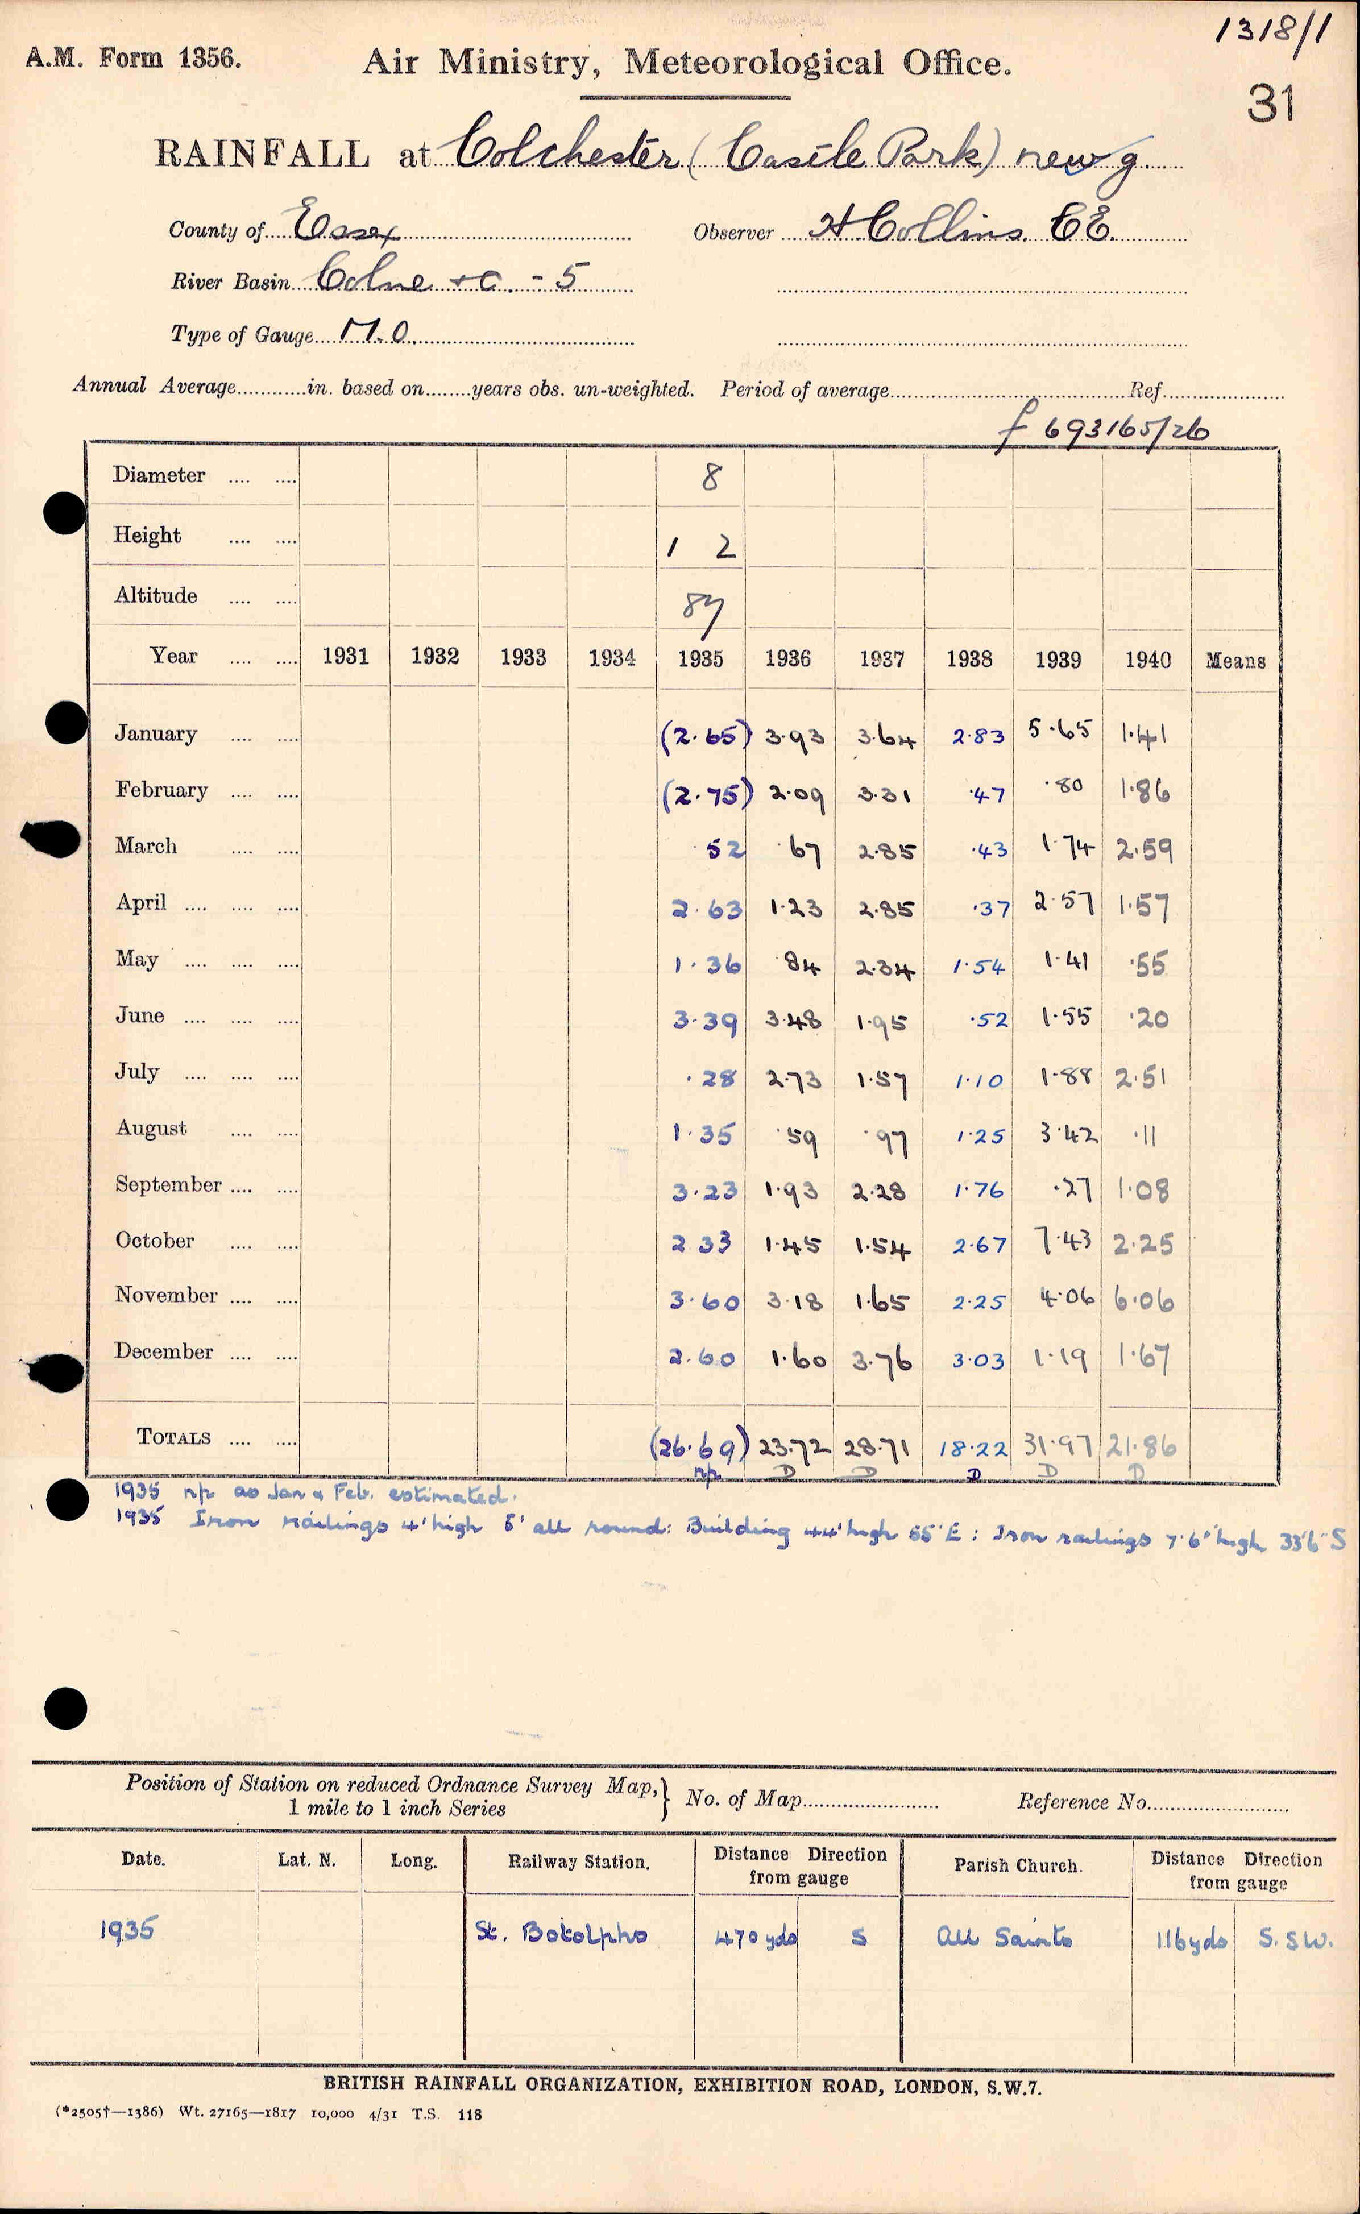 1318/1
A.M. Form 1356. Air Ministry, Meteorological Office.
31
RAINFALL at Colchester (Castle Park) new g
County of Essex Observer H Collins CE
River Basin Colne +c. - 5
Type of Gauge M.O.
Annual Average............in. based on........years obs. un-weighted. Period of average.......... Ref..........
f 693165/26
Diameter .... .... 8
Height .... .... 1 2
Altitude .... .... 87
Year .... .... 1931 1932 1933 1934 1935 1936 1937 1938 1939 1940 Means
January .... .... (2.65) 3.93 3.64 2.83 5.65 1.41
February .... .... (2.75) 2.09 3.31 .47 .80 1.86
March .... .... .52 .67 2.85 .43 1.74 2.59
April .... .... .... 2.63 1.23 2.85 .37 2.57 1.57
May .... .... .... 1.36 .84 2.34 1.54 1.41 .55
June .... .... .... 3.39 3.48 1.95 .52 1.55 .20
July .... .... .... .28 2.73 1.57 1.10 1.88 2.51
August .... .... 1.35 .59 .97 1.25 3.42 .11
September .... .... 3.23 1.93 2.28 1.76 .27 1.08
October .... .... 2.33 1.45 1.54 2.67 7.43 2.25
November .... .... 3.60 3.18 1.65 2.25 4.06 6.06
December .... .... 2.60 1.60 3.76 3.03 1.19 1.67
TOTALS .... .... (26.69) 23.72 28.71 18.22 31.97 21.86
np D D D D D
1935 np as Jan & Feb. estimated.
1935 Iron railings 4' high 5' all round: Building 44' high 55' E: Iron railings 7'6" high 33'6" S
Position of Station on reduced Ordnance Survey Map,} No. of Map.......... Reference No..........
1 mile to 1 inch Series
Date. Lat. N. Long. Railway Station. Distance Direction from gauge Parish Church. Distance Direction from gauge
1935 St. Botolphs 470 yds S All Saints 116 yds S.SW.
BRITISH RAINFALL ORGANIZATION, EXHIBITION ROAD, LONDON, S.W.7.
(*2505†—1386) Wt. 27165—1817 10,000 4/31 T.S. 118